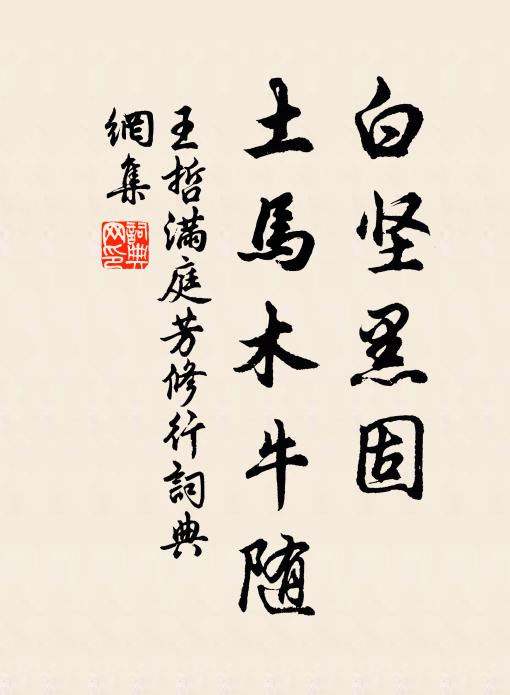 白坚黑固
土馬木牛随
王哲滿庭芳修行詞典
網集
詞典网印